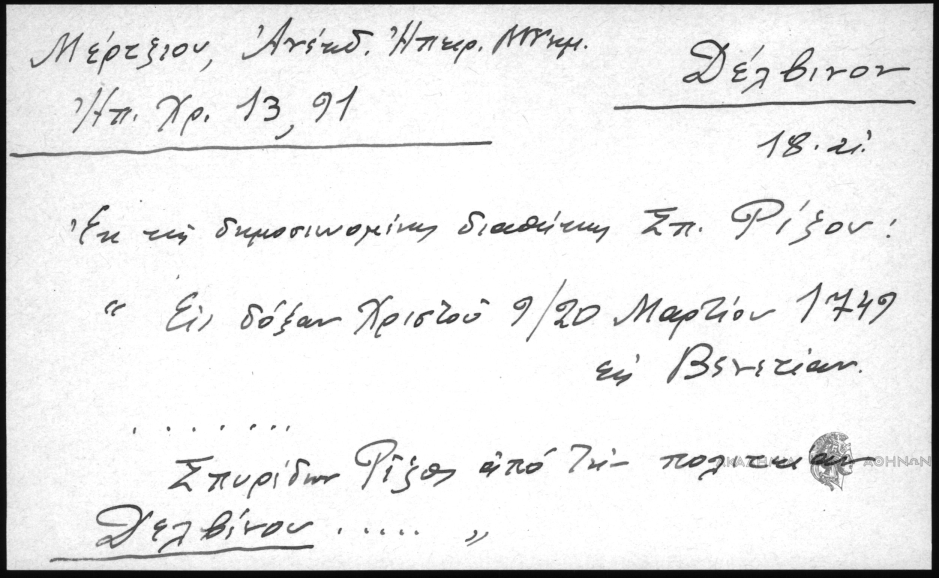 Μέρτζιου, Ἀνέκδ. Ἠπειρ. Μνημ.
Ἠπ. Χρ. 13, 91
Δέλβινον
18. αἰ.
Ἐκ τῆς δημοσιευομένης διαθήκης Σπ. Ρίζου:
“ Εἰς δόξαν Χριστοῦ 9/20 Μαρτίου 1749
εἰς Βενετίαν.
.......
Σπυρίδων Ρίζος ἀπό τήν πολιτείαν
Δελβίνου ..... „
ΑΚΑΔΗΜΙΑ ΑΘΗΝΩΝ